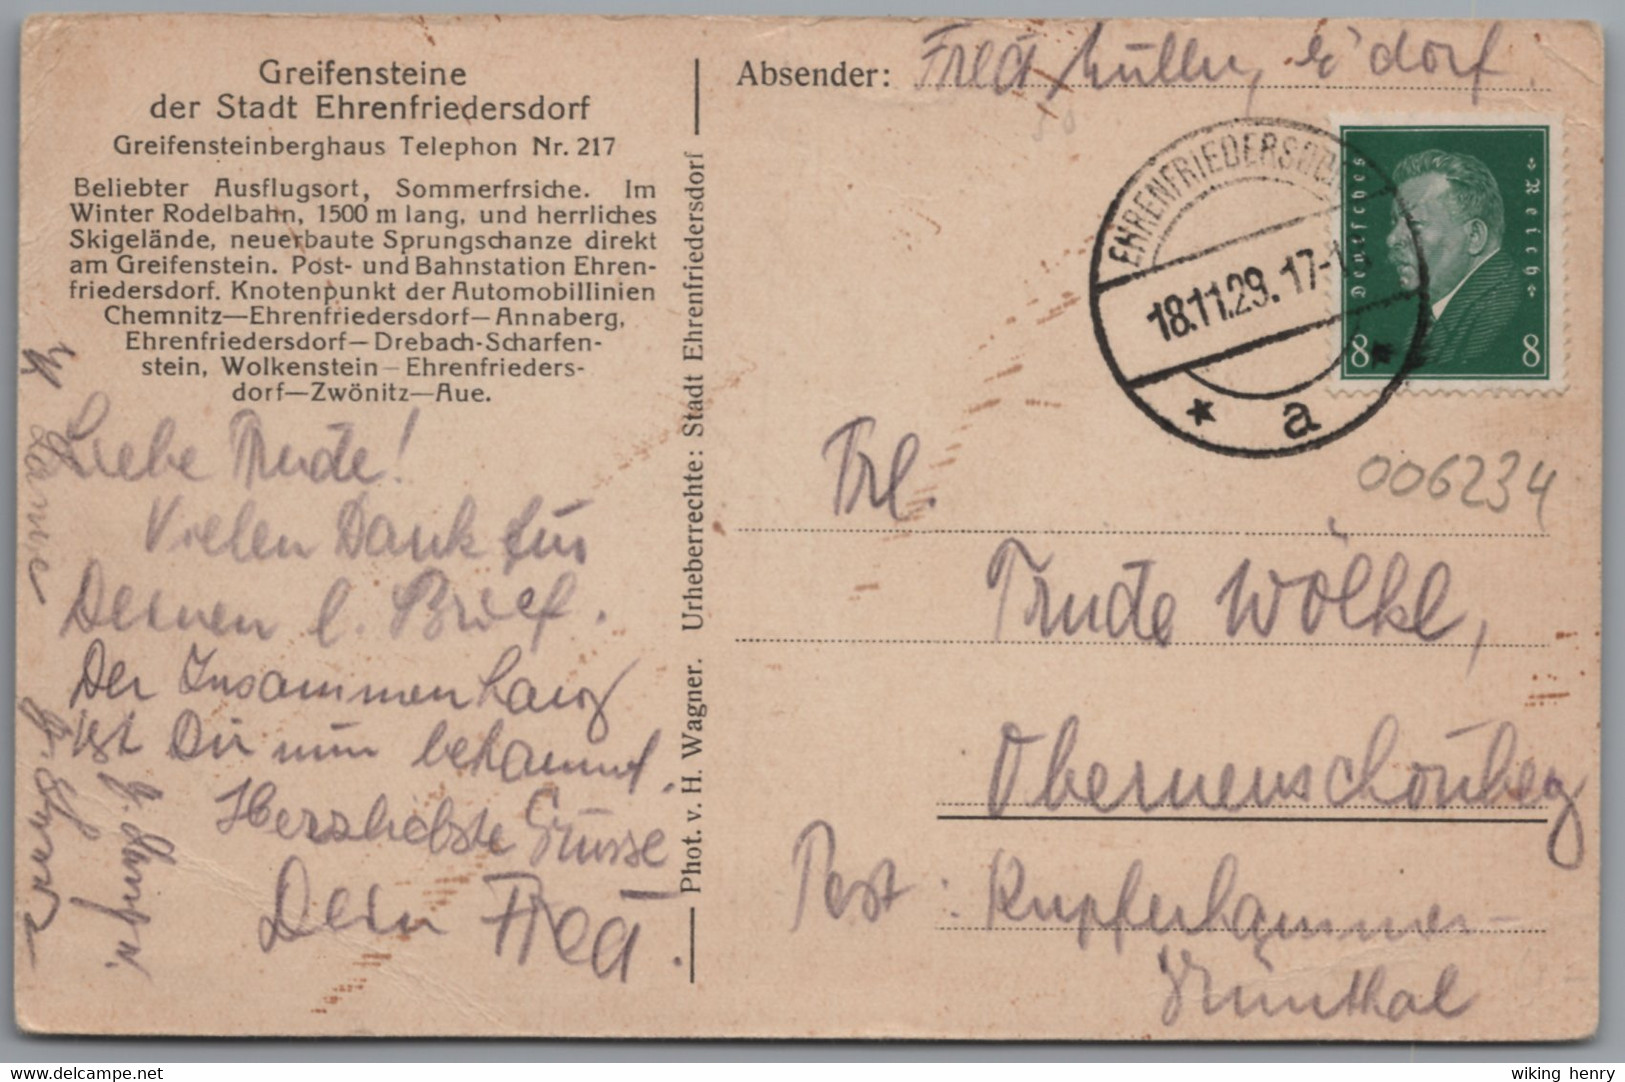 Greifensteine
der Stadt Ehrenfriedersdorf
Greifensteinberghaus Telephon Nr. 217
Beliebter Ausflugsort, Sommerfrsiche. Im
Winter Rodelbahn, 1500 m lang, und herrliches
Skigelände, neuerbaute Sprungschanze direkt
am Greifenstein. Post- und Bahnstation Ehren-
friedersdorf. Knotenpunkt der Automobillinien
Chemnitz—Ehrenfriedersdorf—Annaberg,
Ehrenfriedersdorf—Drebach-Scharfen-
stein, Wolkenstein—Ehrenfrieders-
dorf—Zwönitz—Aue.
Liebe Trude!
Vielen Dank für
Deinen l. Brief.
Der Zusammenhang
ist Dir nun bekannt.
Herzliebste Grüsse
Dein Fred.
Phot. v. H. Wagner. Urheberrechte: Stadt Ehrenfriedersdorf
Absender: Fred Müller, E'dorf.
EHRENFRIEDERSDORF
18.11.29. 17-18
* a *
Deutsches Reich
8 8
006234
Frl.
Trude Wölkl,
Oberneuschönberg
Post: Kupferhammer-
Grünthal
wiking henry